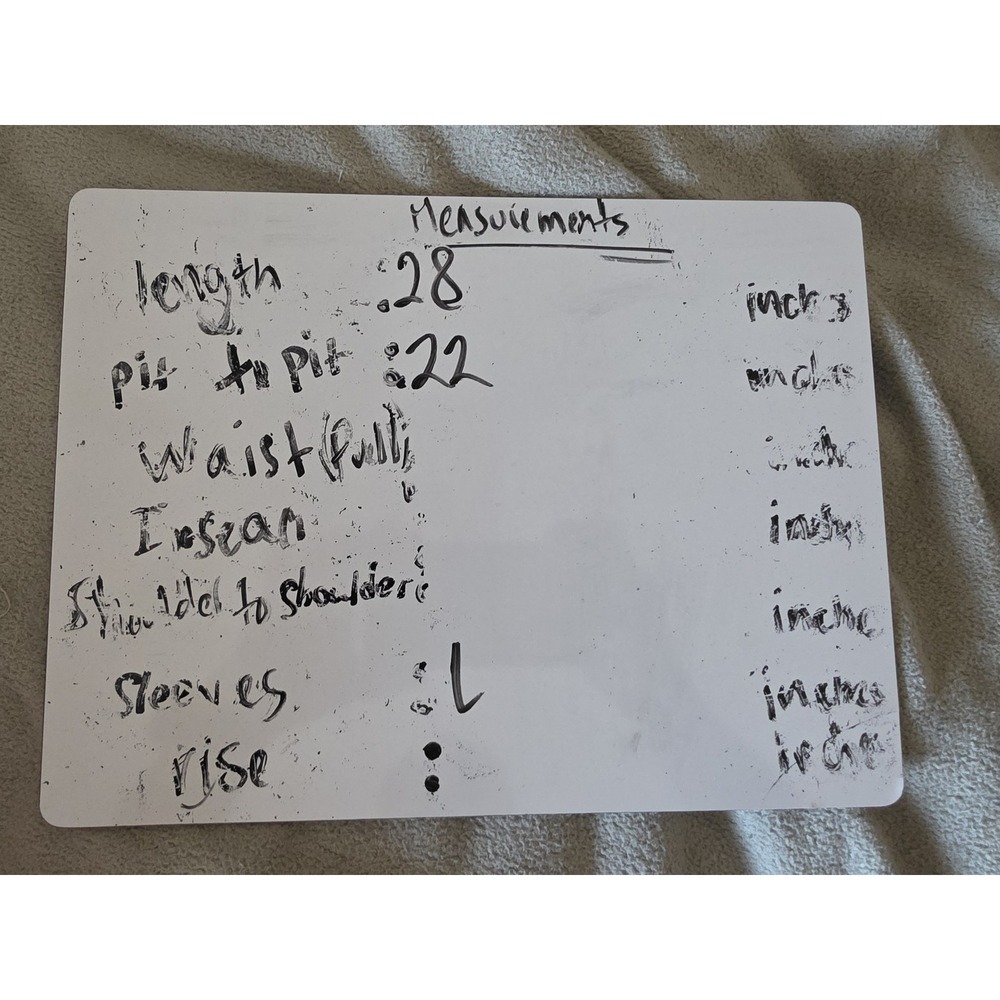 Measurements
length :28 inches
pit to pit :22 inches
Waist (full) : inche
Inseam : inches
Shoulder to shoulder : inche
Sleeves : L inches
rise : inche